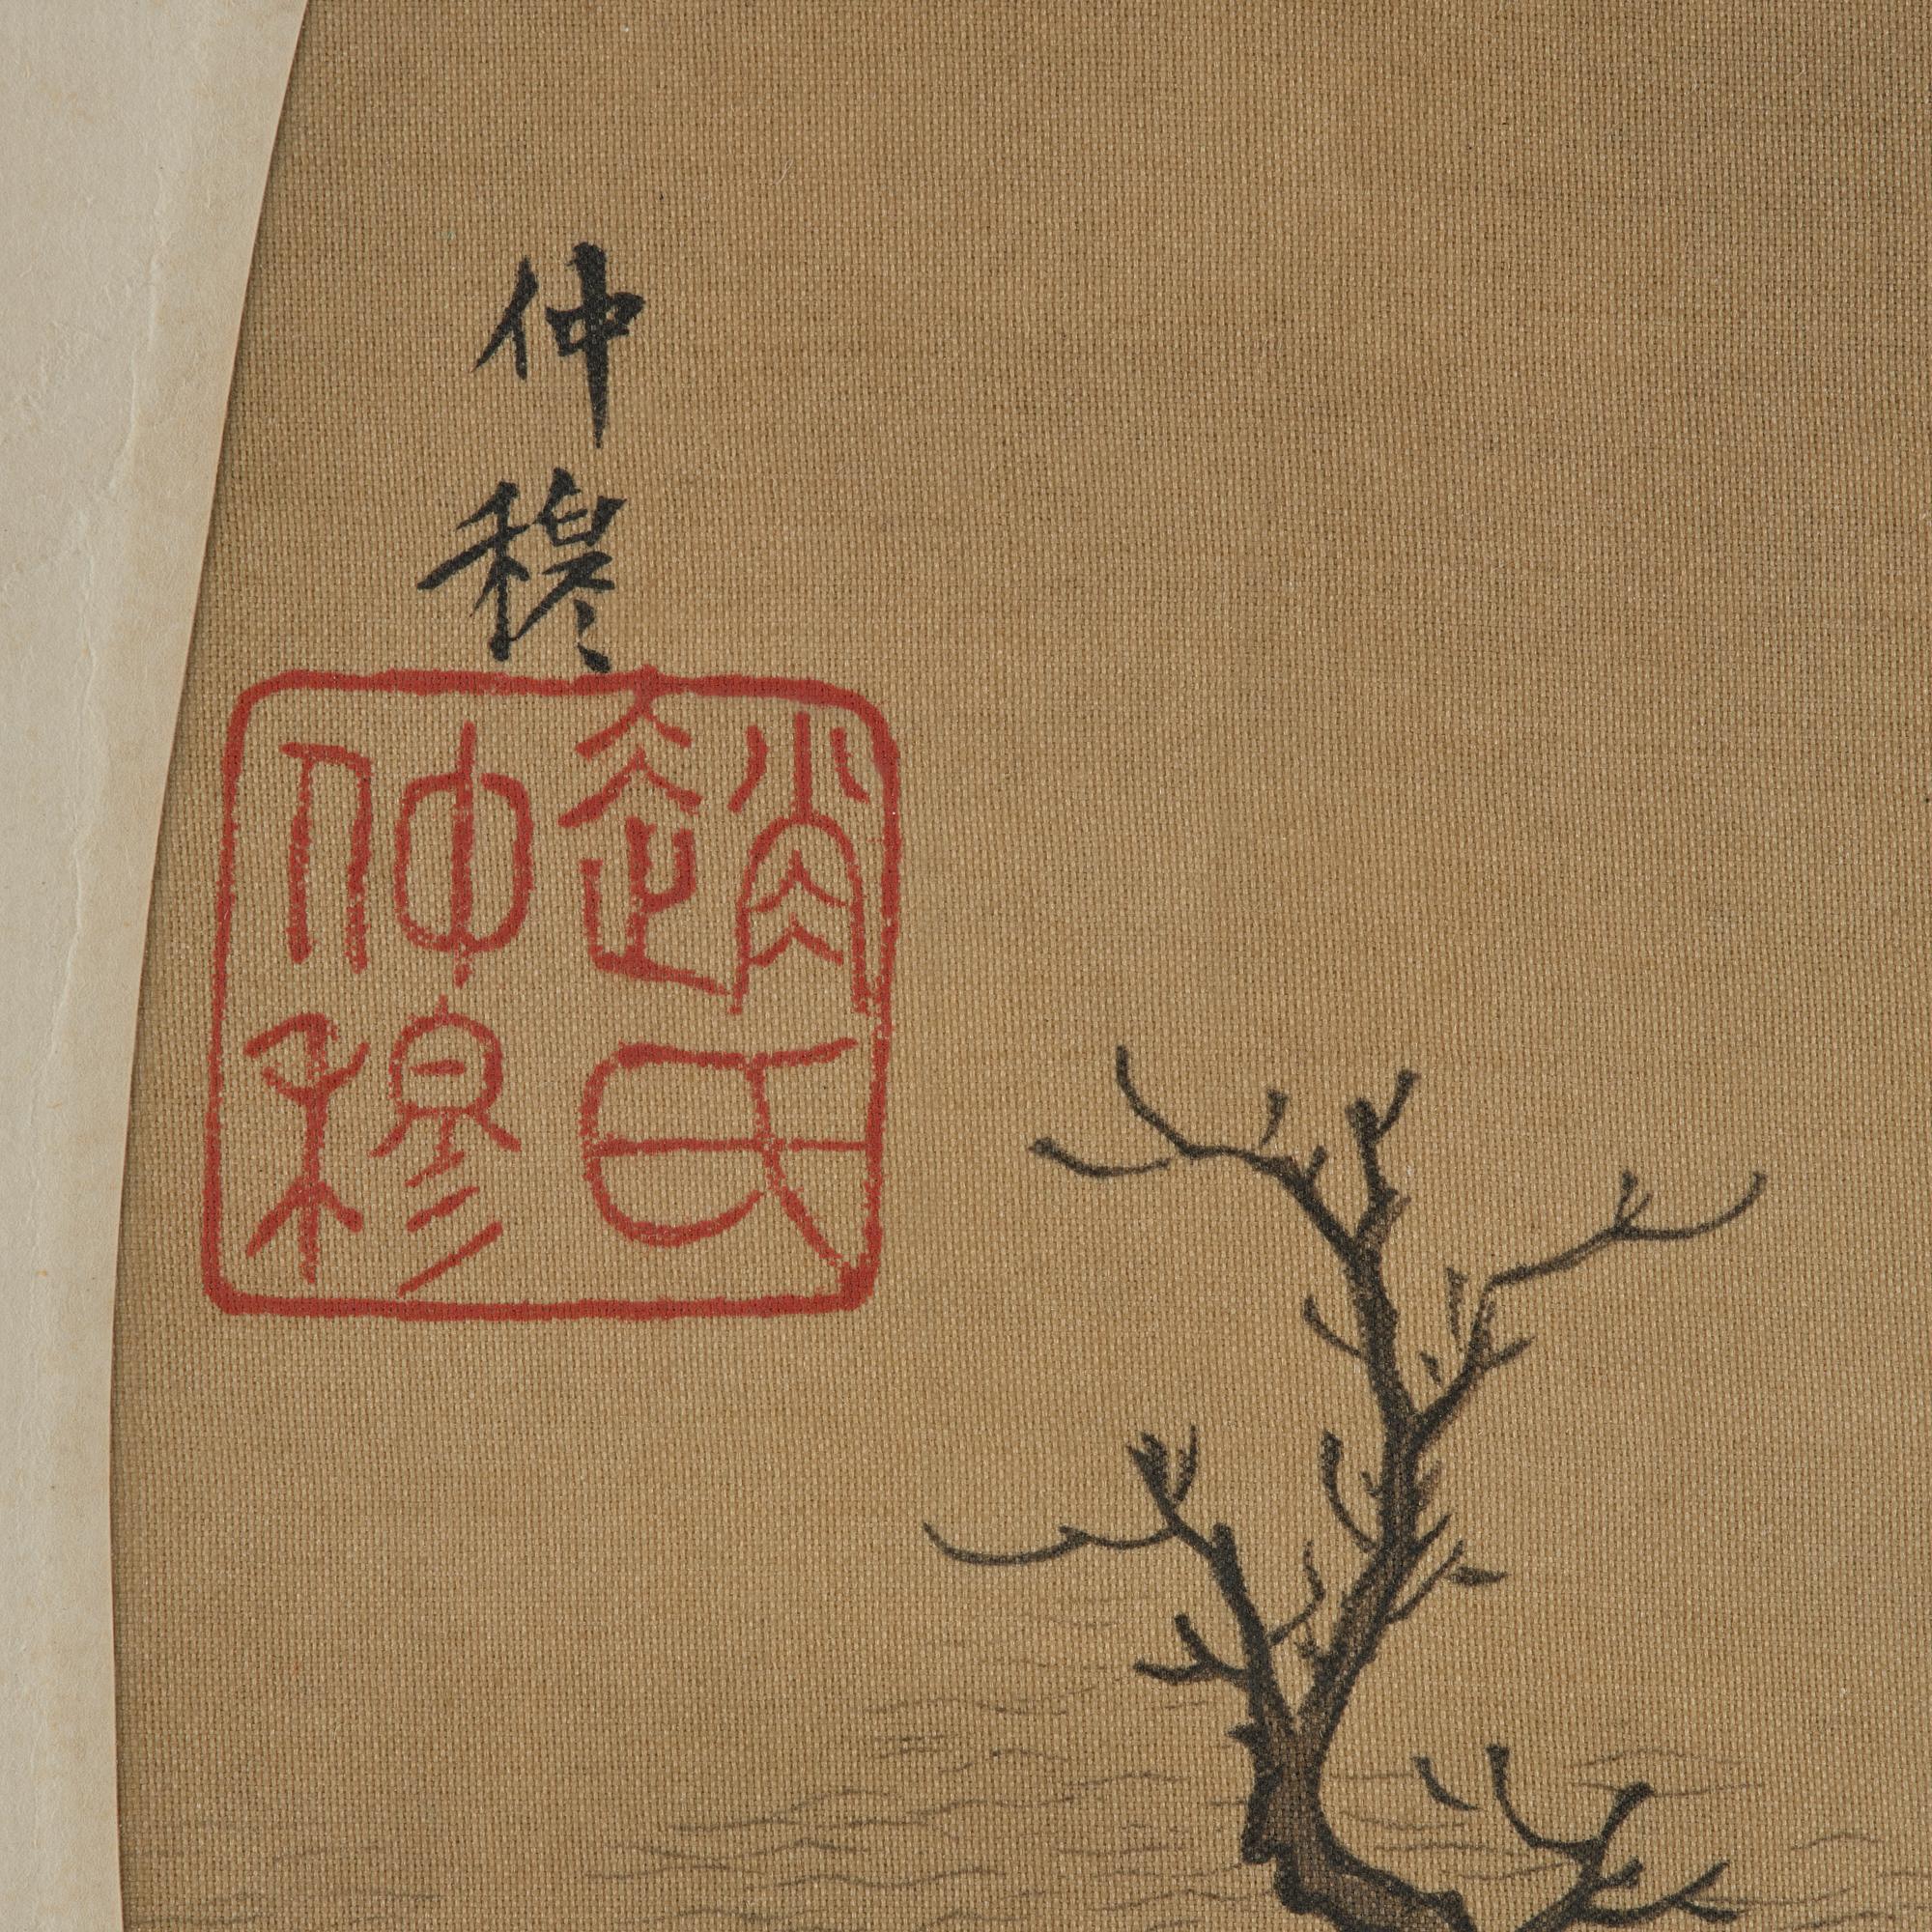 仲穆
趙氏
仲穆